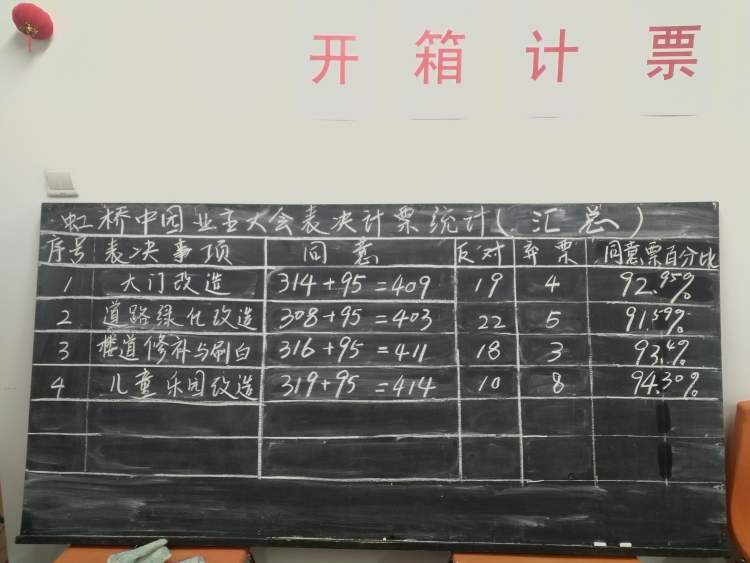 开箱计票
虹桥中园业主大会表决计票统计(汇总)
序号 表决事项 同意 反对 弃票 同意票百分比
1 大门改造 314+95=409 19 4 92.95%
2 道路绿化改造 308+95=403 22 5 91.59%
3 楼道修补与刷白 316+95=411 18 3 93.4%
4 儿童乐园改造 319+95=414 10 8 94.30%